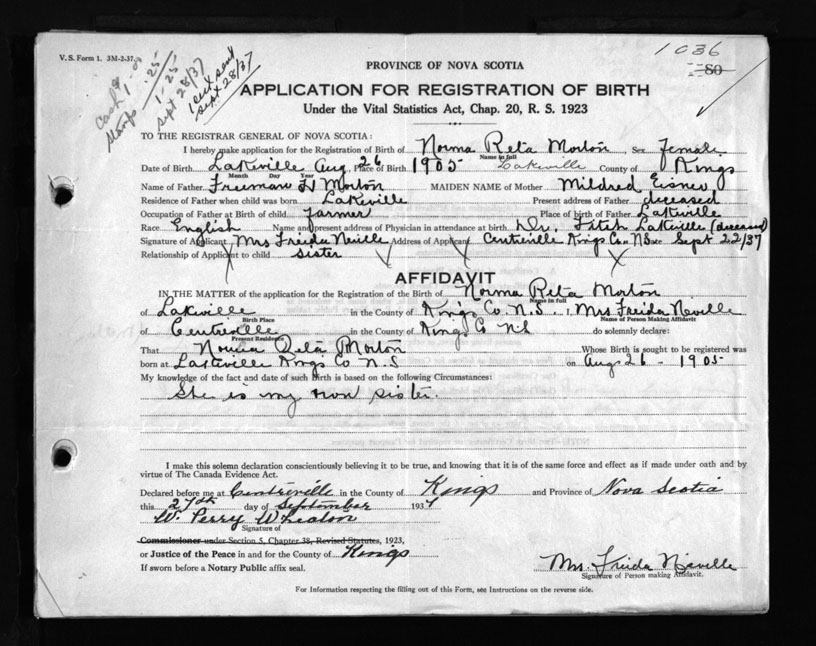 V. S. Form 1. 3M-2-37.
Cash $1.00
Stamps .25
1.25
Sept 28/37
sent
Sept 28/37
1036
80
PROVINCE OF NOVA SCOTIA
APPLICATION FOR REGISTRATION OF BIRTH
Under the Vital Statistics Act, Chap. 20, R. S. 1923
TO THE REGISTRAR GENERAL OF NOVA SCOTIA:
I hereby make application for the Registration of Birth of Norma Reta Morton, Sex female
Name in full
Date of Birth Lakeville Aug. 26 1905 Place of Birth Lakeville County of Kings
Month Day Year
Name of Father Freeman H Morton MAIDEN NAME of Mother Mildred Eisner
Residence of Father when child was born Lakeville Present address of Father deceased
Occupation of Father at Birth of child farmer Place of birth of Father Lakeville
Race English Name and present address of Physician in attendance at birth Dr. Fitch Lakeville (deceased)
Signature of Applicant Mrs Freida Neville Address of Applicant Centreville Kings Co. NS Date Sept 22/37
Relationship of Applicant to child sister
AFFIDAVIT
IN THE MATTER of the application for the Registration of the Birth of Norma Reta Morton
Name in full
of Lakville in the County of Kings Co. N. S. I, Mrs Freida Neville
Birth Place Name of Person Making Affidavit
of Centreville in the County of Kings Co N.S do solemnly declare:
Present Residence
That Norma Reta Morton Whose Birth is sought to be registered was
born at Lakeville Kings Co N. S on Aug 26 - 1905
My knowledge of the fact and date of such Birth is based on the following Circumstances:
She is my own sister.
I make this solemn declaration conscientiously believing it to be true, and knowing that it is of the same force and effect as if made under oath and by
virtue of The Canada Evidence Act.
Declared before me at Centreville in the County of Kings and Province of Nova Scotia
this 27th day of September 1937
W. Perry Wheaton
Signature of
Commissioner under Section 5, Chapter 38, Revised Statutes, 1923,
or Justice of the Peace in and for the County of Kings
If sworn before a Notary Public affix seal.
Mrs. Freida Neville
Signature of Person making Affidavit.
For Information respecting the filling out of this Form, see Instructions on the reverse side.